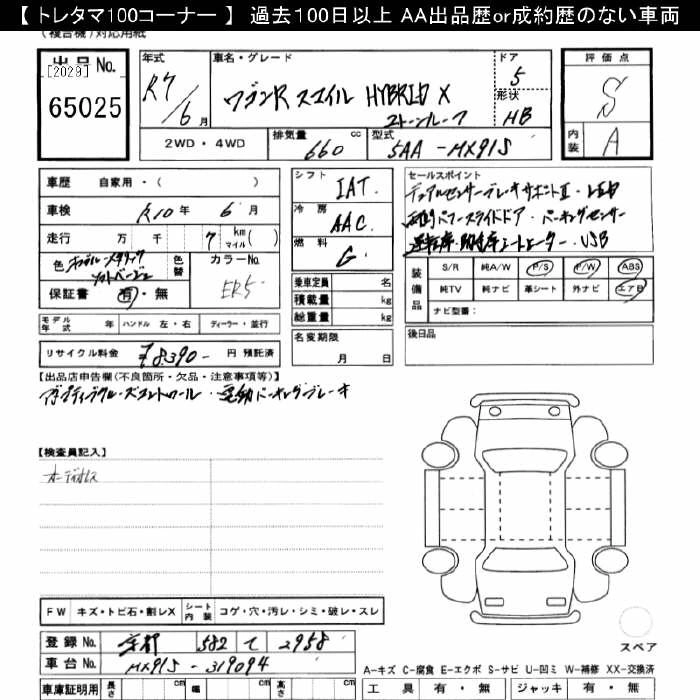 【 トレタマ100コーナー 】 過去100日以上 AA出品歴or成約歴のない車両
(複合機)対応用紙
出品No.
[2029]
65025
年式
R7/6月
車名・グレード
ワゴンR スマイル HYBRID X
2トーンルーフ
ドア
5
形状
HB
評価点
S
内装
A
2WD・4WD
排気量
660
cc
型式
5AA-MX91S
車歴 自家用・( )
車検 R10年 6月
走行 万 千 7 km マイル ( )
色
色替
カラーNo.
ER5
保証書 有・無
モデル年式 年 ハンドル 左・右 ディーラー・並行
リサイクル料金 ¥8,390- 円 預託済
シフト
IAT.
冷房
AAC.
燃料
G.
乗車定員 名
積載量 kg
総重量 kg
名変期限
月 日
セールスポイント
デュアルセンサーブレーキサポートⅡ・LED
両側パワースライドドア・パーキングセンサー
運転席・助手席シートヒーター・USB
装備品
S/R 純A/W P/S P/W ABS
純TV 純ナビ 革シート 外ナビ エアB
ナビ型番:
後日品
【出品店申告欄(不良箇所・欠品・注意事項等)】
アダプティブクルーズコントロール・電動パーキングブレーキ
【検査員記入】
オーディオレス
FW キズ・トビ石・割レX シート内装 コゲ・穴・汚レ・シミ・破レ・スレ
登録No. 京都 582 て 2958
車台No. MX91S-319094
車庫証明用 長さ cm 幅 cm 高さ cm
スペア
A-キズ C-腐食 E-エクボ S-サビ U-凹ミ W-補修 XX-交換済
工具 有・無 ジャッキ 有・無